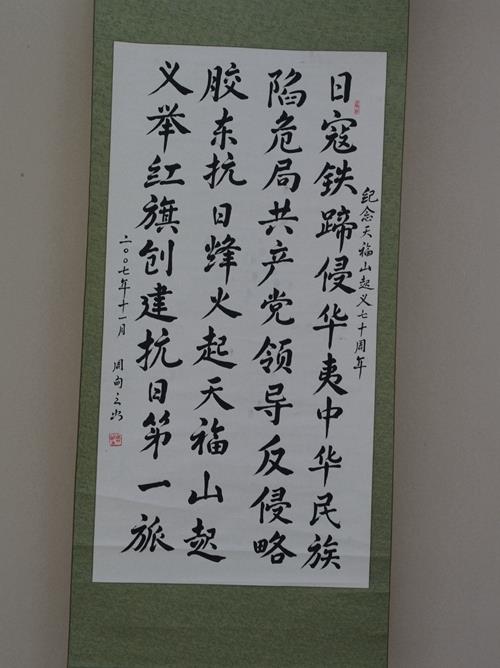 纪念天福山起义七十周年
日寇铁蹄侵华夷中华民族
陷危局共产党领导反侵略
胶东抗日烽火起天福山起
义举红旗创建抗日第一旅
二〇〇七年十一月 周